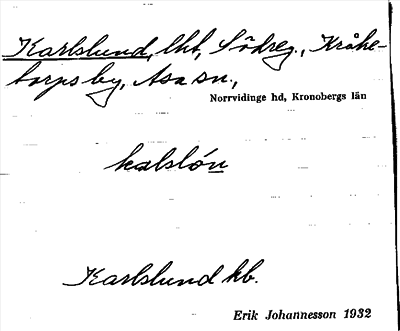 Karlslund, lht, Södreg., Kråke-
torps by, Asa sn.,
Norrvidinge hd, Kronobergs län
kalslón
Karlslund kb.
Erik Johannesson 1932